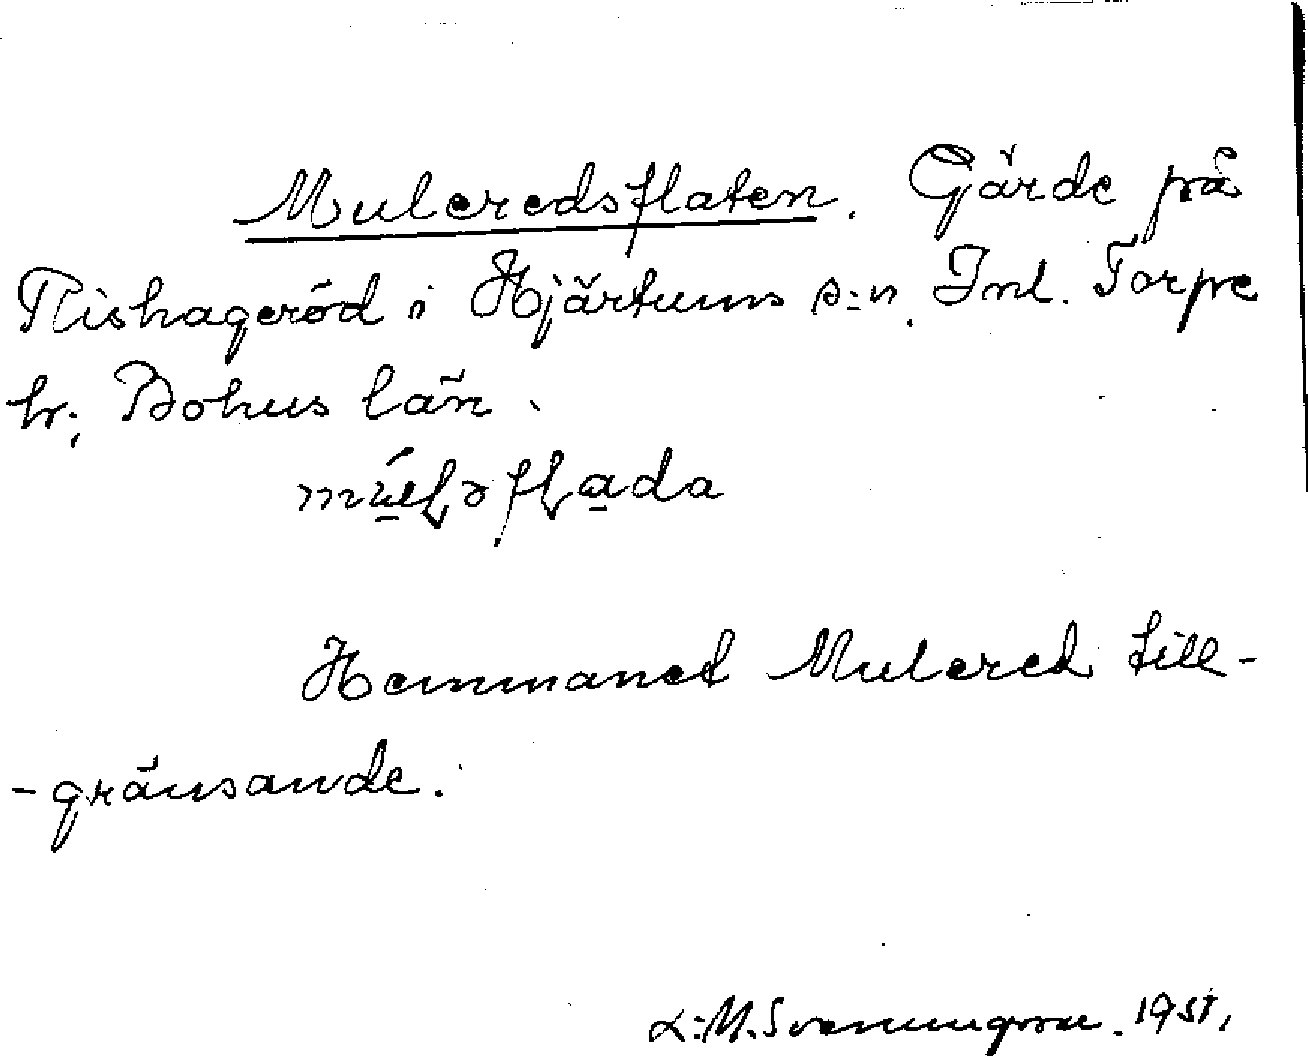 Muleredsflaten. Gärde på
Rishageröd i Hjärtums s:n. Inl. Torpe
hr; Bohus län.
Hemmanet Mulered till-
-gränsande.
1951.